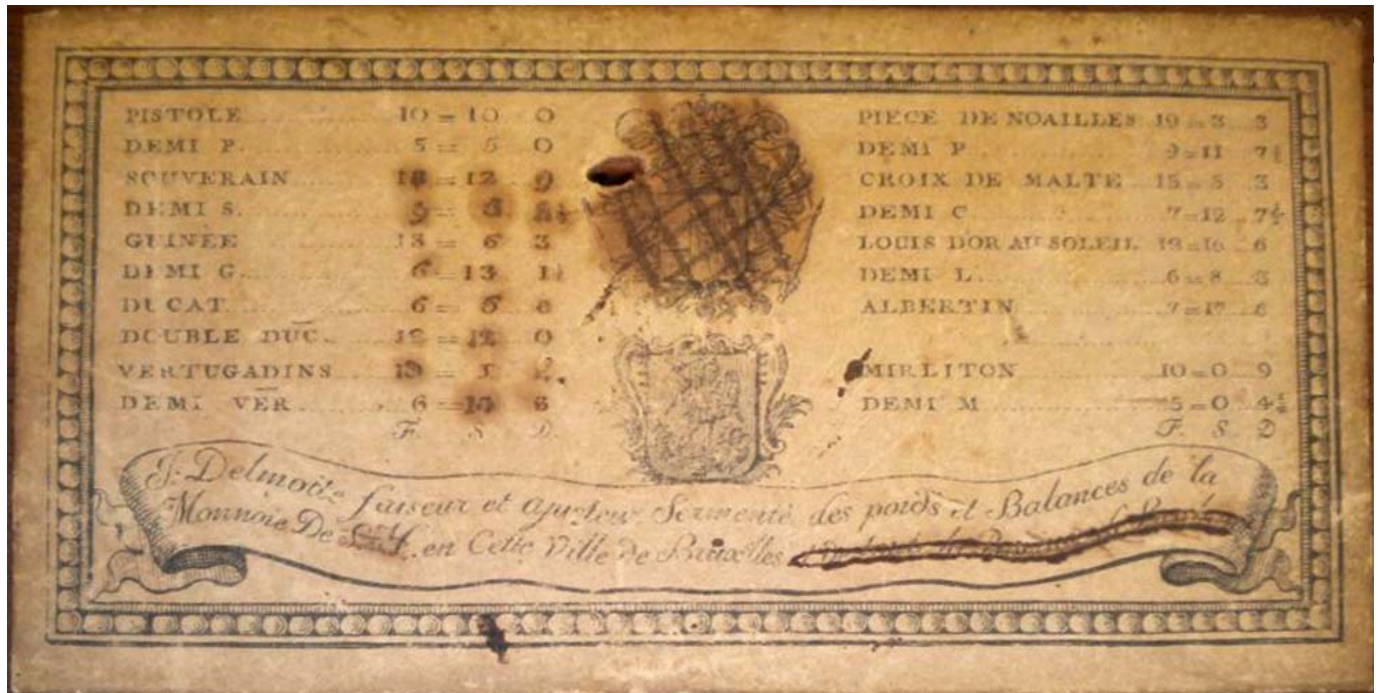 PISTOLE 10 = 10 0
DEMI P. 5 = 5 0
SOUVERAIN 18 = 12 9
DEMI S. 9 = 6
GUINÉE 13 = 6 3
DEMI G. 6 = 13 1½
DUCAT 6 = 6 0
DOUBLE DUC. 12 = 12 0
VERTUGADINS 13 =
DEMI VER 6 = 6
F. S. D.
PIECE DE NOAILLES 19 = 3 3
DEMI P 9 = 11 7½
CROIX DE MALTE 15 = 5 3
DEMI C 7 = 12 7½
LOUIS DOR AU SOLEIL 16 6
DEMI L. 6 = 8 3
ALBERTIN 7 = 17 6
MIRLITON 10 = 0 9
DEMI M 5 = 0 4½
F. S. D
J. Delmotte faiseur et ajusteur Sermenté des poids et Balances de la
Monnoie De S.M. en Cette Ville de Bruxelles